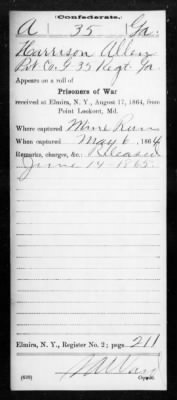 Confederate.
A 35 Ga.
Harrison Allen
Pvt. Co. G 35 Regt Ga
Appears on a roll of
Prisoners of War
received at Elmira, N. Y., August 17, 1864, from
Point Lookout, Md.
Where captured Mine Run
When captured May 6, 1864
Remarks, charges, &c.: Released
June 14 1865.
Elmira, N. Y., Register No. 2; page 211
(639)
Copyist.